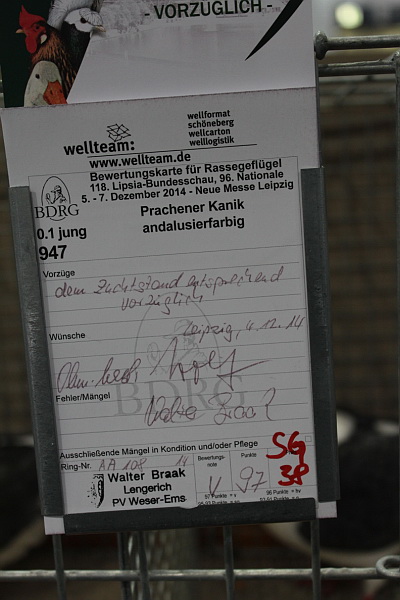 - VORZÜGLICH -
wellformat
schöneberg
wellcarton
welllogistik
wellteam:
www.wellteam.de
Bewertungskarte für Rassegeflügel
118. Lipsia-Bundesschau, 96. Nationale
5. - 7. Dezember 2014 - Neue Messe Leipzig
BDRG
Prachener Kanik
andalusierfarbig
0.1 jung
947
Vorzüge
dem Zuchtstand entsprechend
vorzüglich
Wünsche
Leipzig, 4.12.14
BDRG
Fehler/Mängel
Walter Braak
Ausschließende Mängel in Kondition und/oder Pflege
SG
38
Ring-Nr. AA 108 14
Bewertungsnote
Punkte
Walter Braak
Lengerich
PV Weser-Ems
V
97
97 Punkte = v
96 Punkte = hv